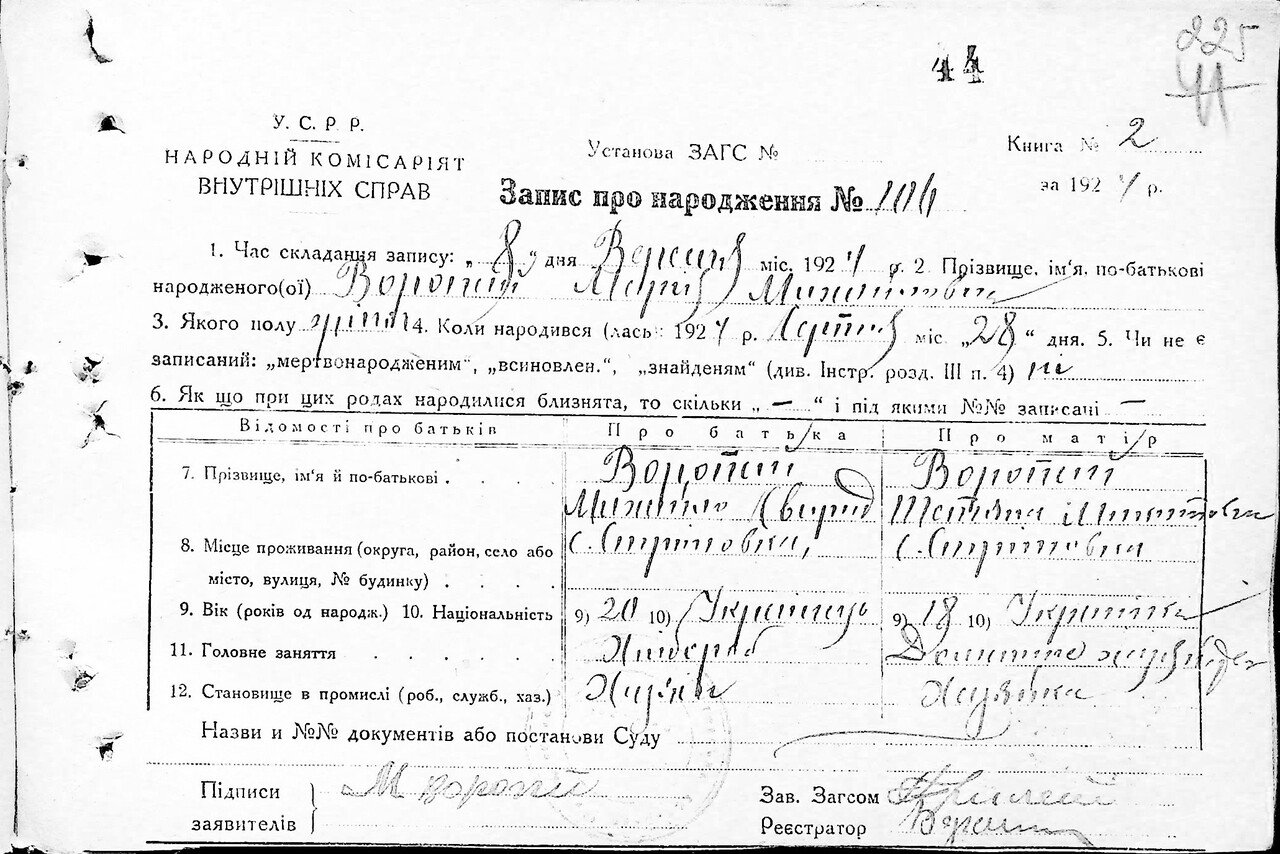 44
225
41
У. С. Р. Р.
НАРОДНІЙ КОМІСАРІЯТ
ВНУТРІШНІХ СПРАВ
Установа ЗАГС №
Книга № 2
за 1924 р.
Запис про народження № 106
1. Час складання запису: „ 8 „ дня Вересня міс. 1924 р. 2. Прізвище, ім‘я, по-батькові
народженого(ої) Воропай Марія Михайловна
3. Якого полу жіноч 4. Коли народився (лась) 1924 р. Серпня міс. „28“ дня. 5. Чи не є
записаний: „мертвонародженим“, „всиновлен.“, „знайденям“ (див. Інстр. розд. III п. 4) ні
6. Як що при цих родах народилися близнята, то скільки „ — “ і під якими №№ записані —
Відомості про батьків Про батька Про матір
7. Прізвище, ім‘я й по-батькові Воропай Воропай
Михайло Свирид Тетяна Микитовна
8. Місце проживання (округа, район, село або с. Стритовка, с. Стритовка
місто, вулиця, № будинку)
9. Вік (років од народж.) 10. Національність 9) 20 10) Українець 9) 18 10) Українка
11. Головне заняття Хлібороб Домашнє
12. Становище в промислі (роб., служб., хаз.) Хазяїн Хазяйка
Назви и №№ документів або постанови Суду
Підписи
заявителів
М Воропай
Зав. Загсом
Реєстратор